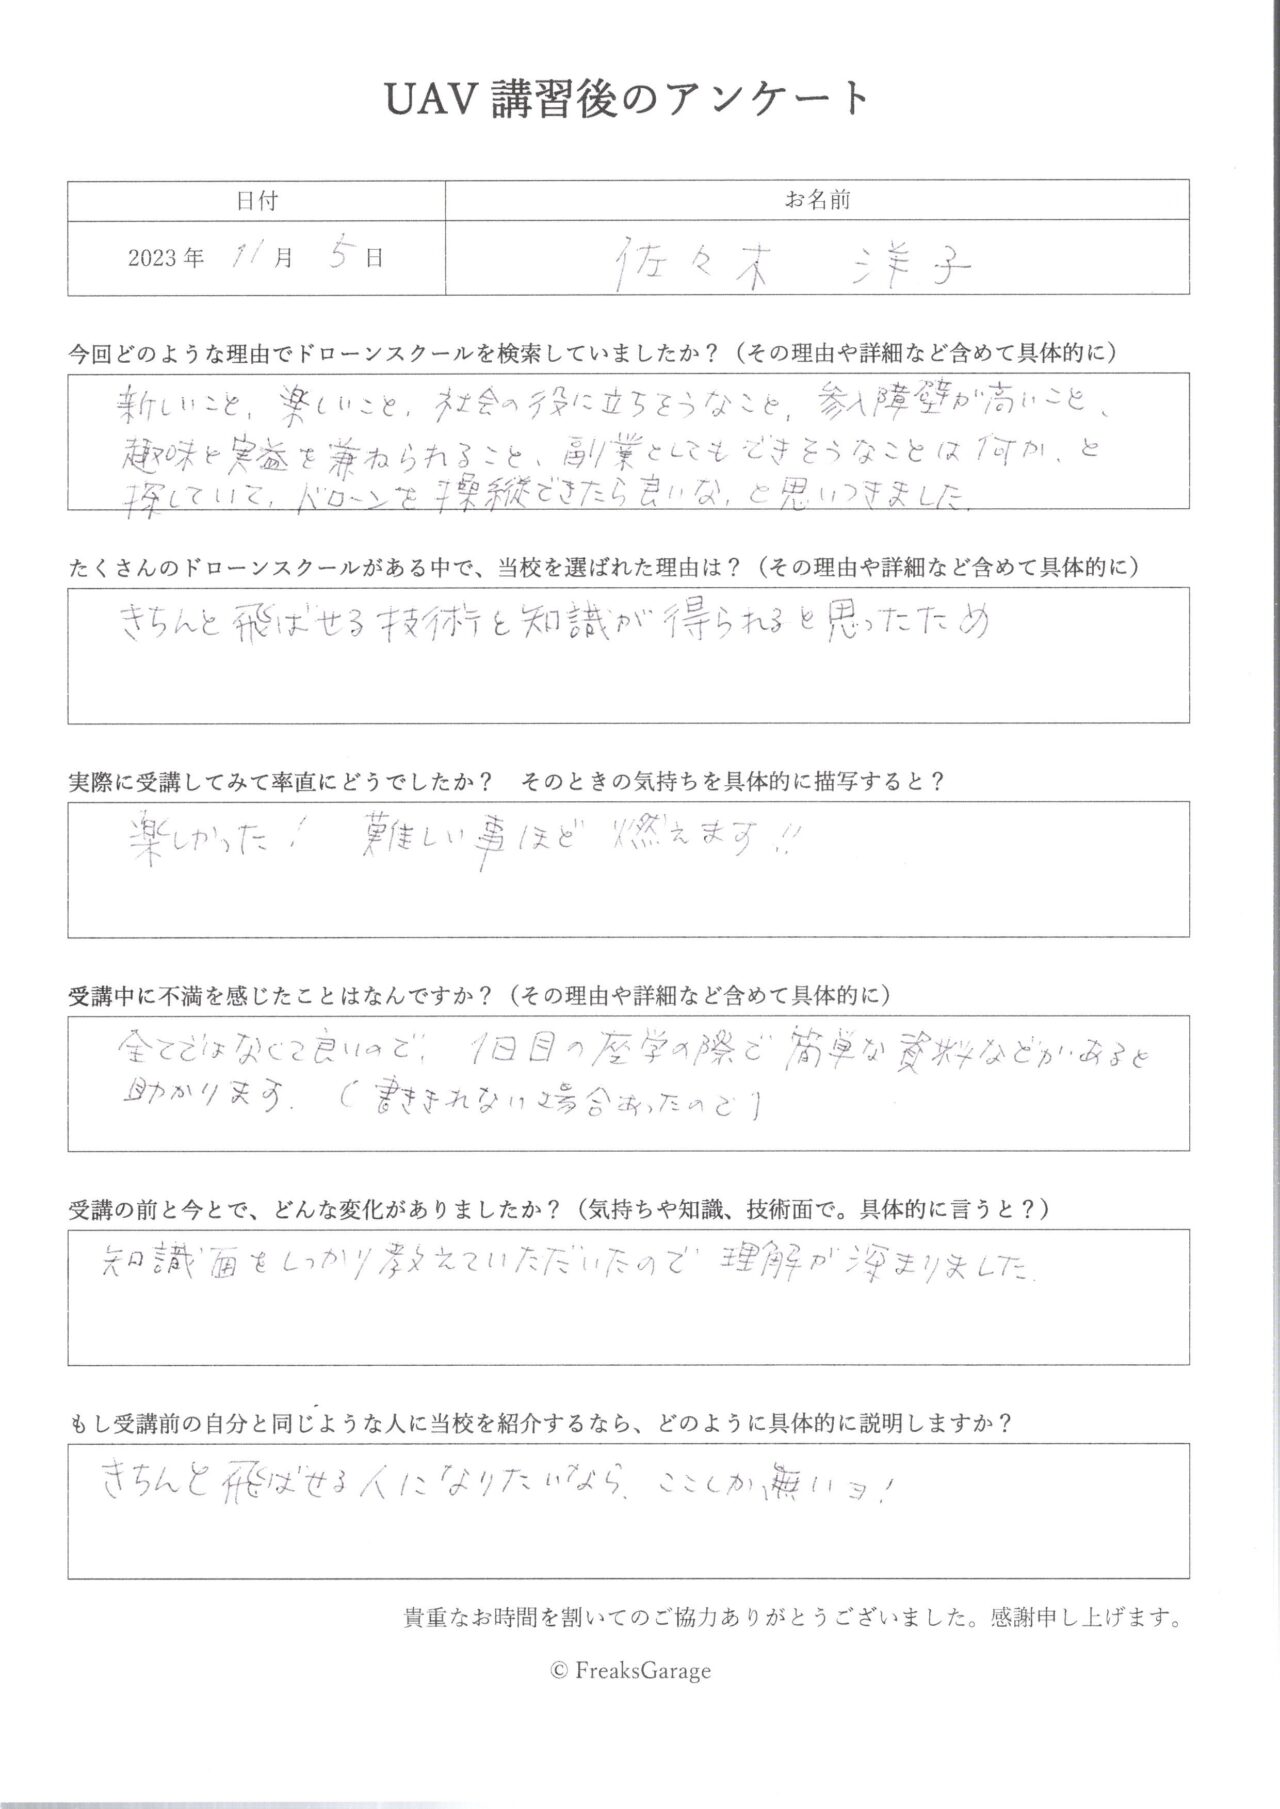 UAV 講習後のアンケート
日付
お名前
2023年 11月 5日
佐々木 洋子
今回どのような理由でドローンスクールを検索していましたか？（その理由や詳細など含めて具体的に）
新しいこと、楽しいこと、社会の役に立ちそうなこと、参入障壁が高いこと、
趣味と実益を兼ねられること、副業としてもできそうなことは何か、と
探していて、ドローンを操縦できたら良いな、と思いつきました。
たくさんのドローンスクールがある中で、当校を選ばれた理由は？（その理由や詳細など含めて具体的に）
きちんと飛ばせる技術と知識が得られると思ったため
実際に受講してみて率直にどうでしたか？　そのときの気持ちを具体的に描写すると？
楽しかった！ 難しい事ほど 燃えます!!
受講中に不満を感じたことはなんですか？（その理由や詳細など含めて具体的に）
全てではなくて良いので、1日目の座学の際で簡単な資料などがあると
助かります。（書ききれない場合あったので）
受講の前と今とで、どんな変化がありましたか？（気持ちや知識、技術面で。具体的に言うと？）
知識面をしっかり教えていただいたので理解が深まりました。
もし受講前の自分と同じような人に当校を紹介するなら、どのように具体的に説明しますか？
きちんと飛ばせる人になりたいなら、ここしか無いヨ！
貴重なお時間を割いてのご協力ありがとうございました。感謝申し上げます。
© FreaksGarage